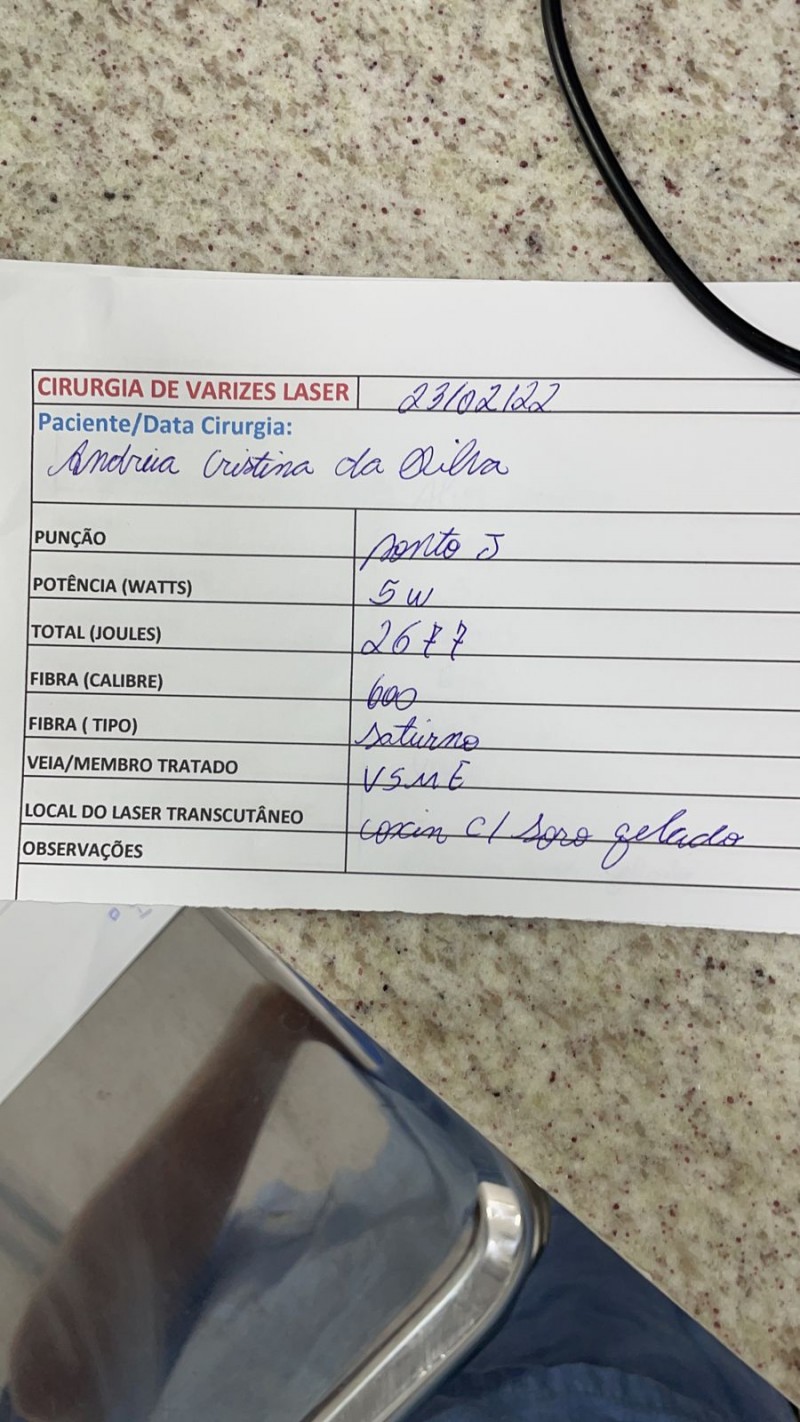 CIRURGIA DE VARIZES LASER 23/02/22
Paciente/Data Cirurgia:
Andréia Cristina da Silva
PUNÇÃO ponto J
POTÊNCIA (WATTS) 5 W
TOTAL (JOULES) 2677
FIBRA (CALIBRE) 600
FIBRA ( TIPO) saturno
VEIA/MEMBRO TRATADO VSME
LOCAL DO LASER TRANSCUTÂNEO coxin c/ soro gelado
OBSERVAÇÕES